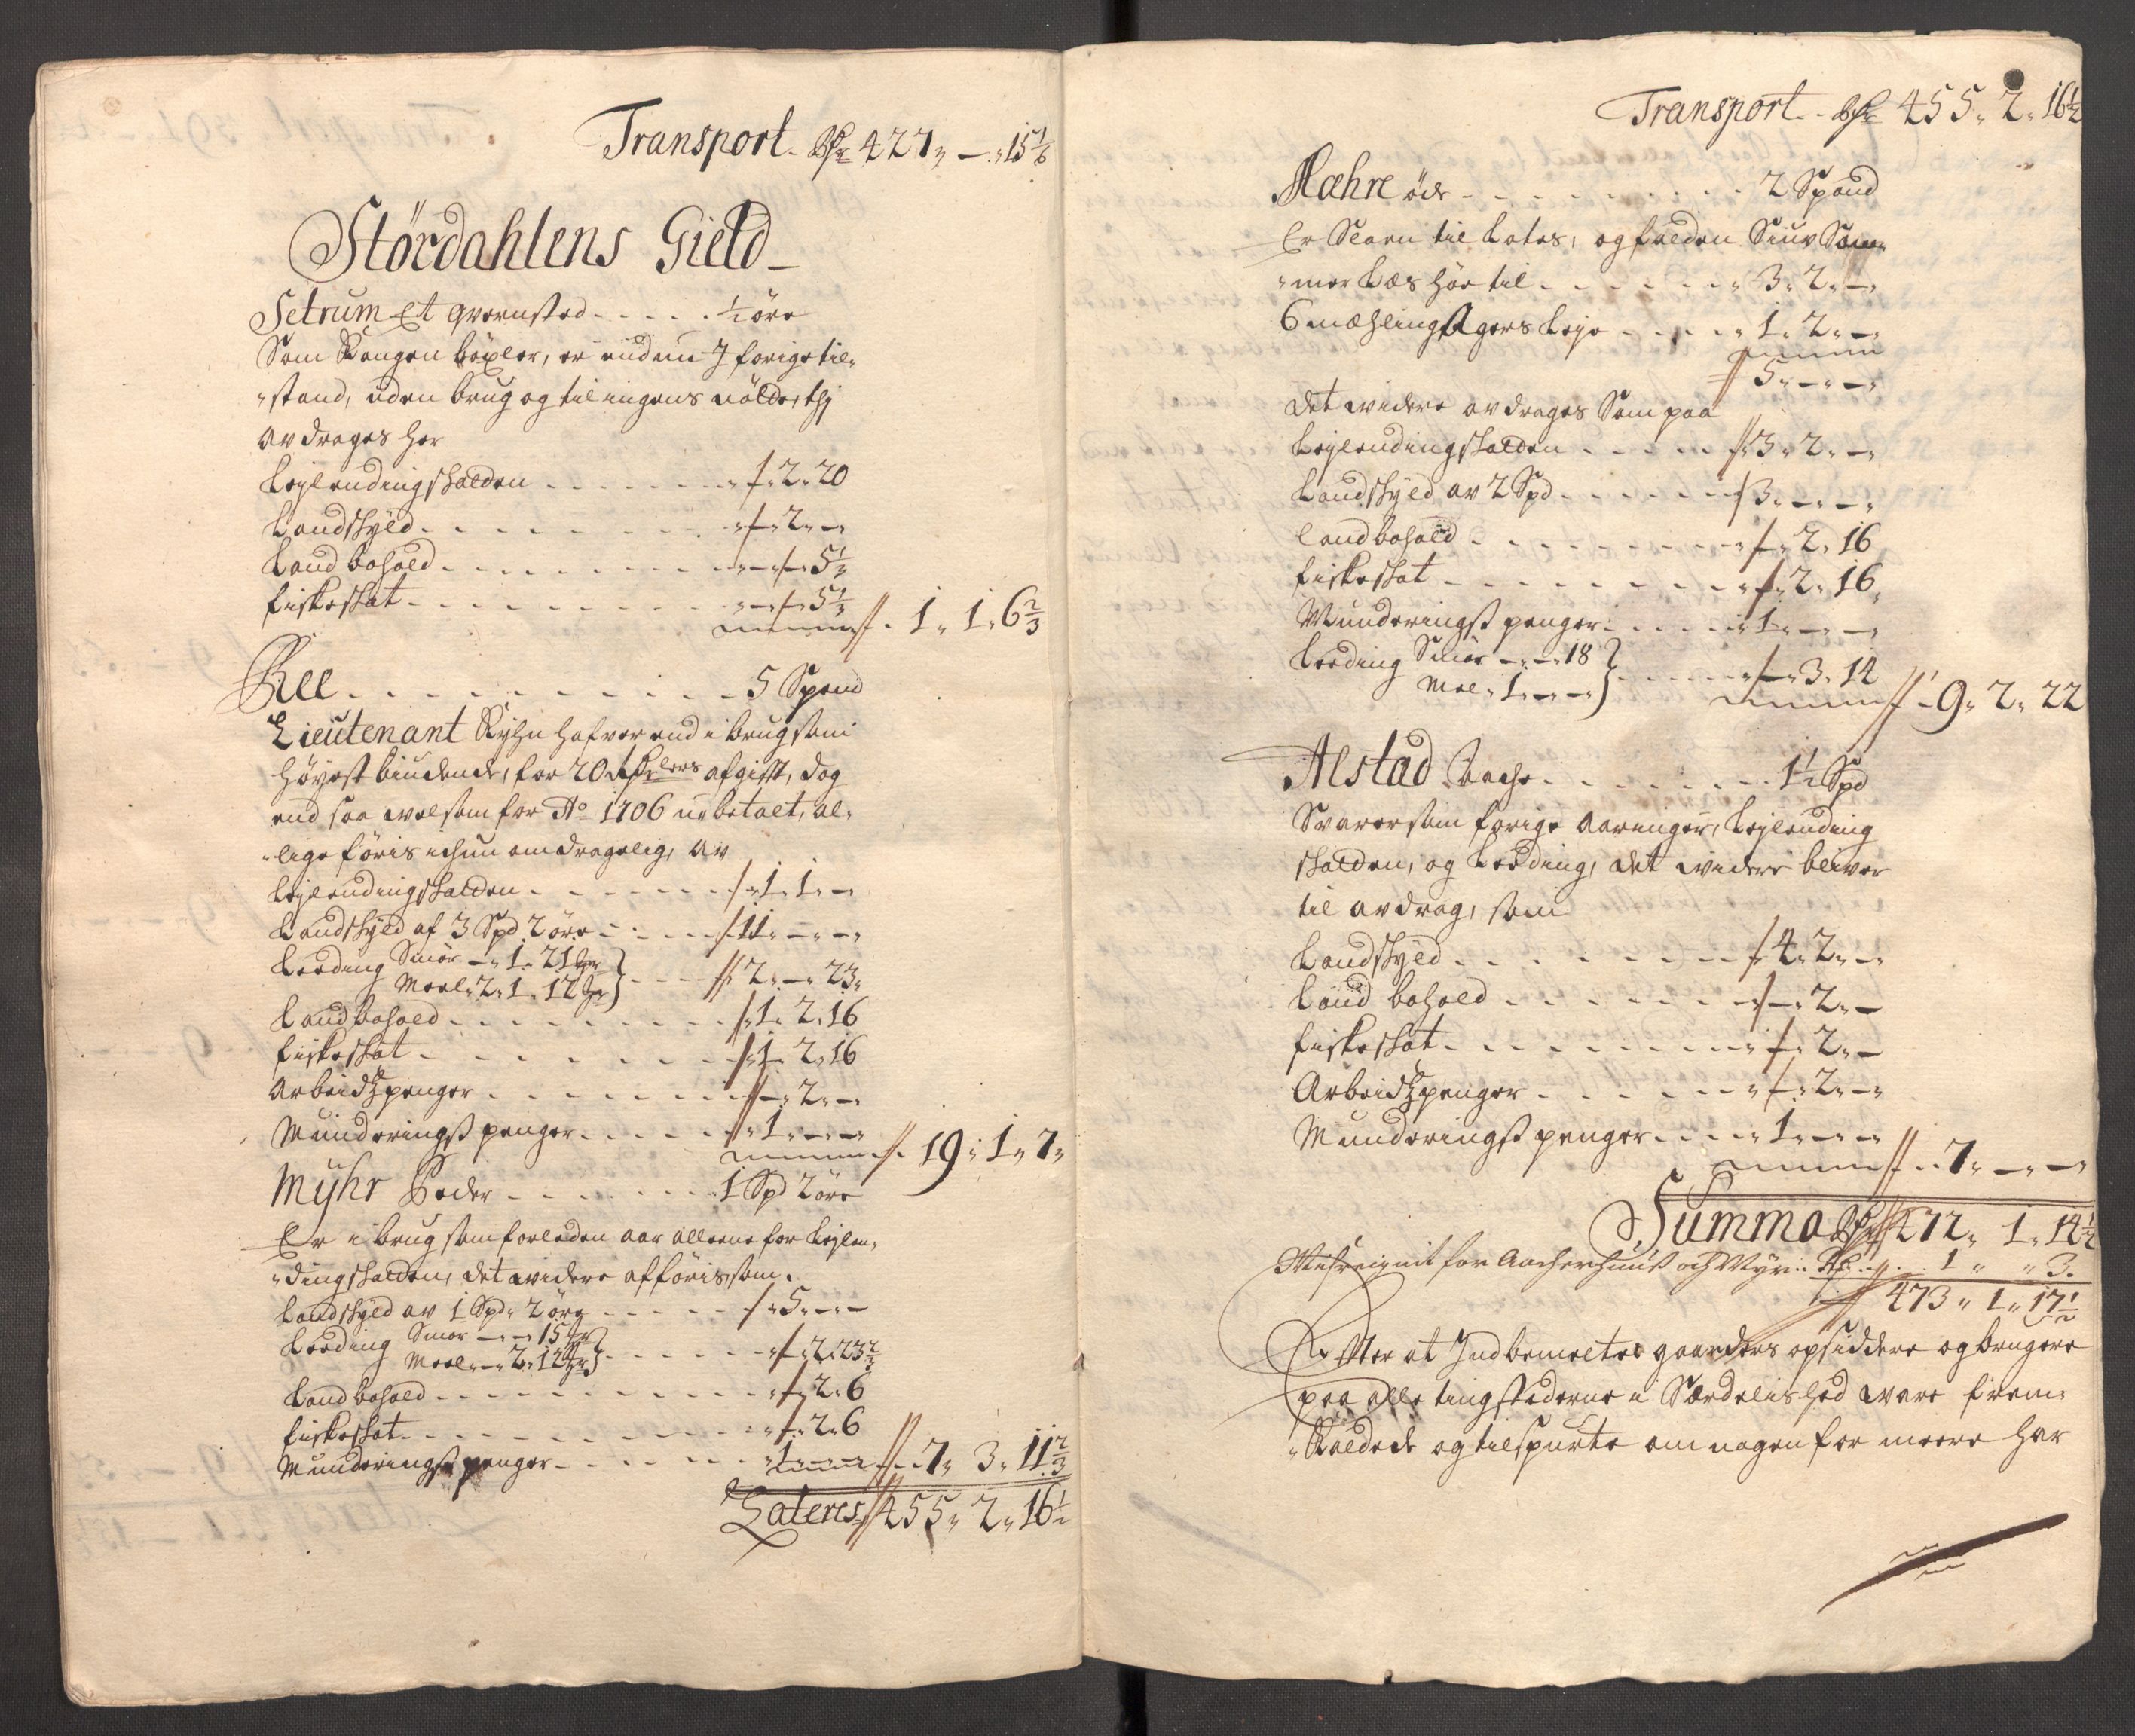 Transport. Rdr 427 „ — „ 15 1/6
Stördahlens Gield
Setrum Et qvernsted - - - - - 1/2 öre
Som Kongen böxler, er endnu J forige til„
„stand, uden brug og til ingens nötte, thj
av drages her
Leylendingskatten - - - - - „ — „ 2 „ 20
Landskyld - - - - - „ — „ 2 „ —
Landbohold - - - - - „ — „ — „ 5 1/3
fiskeskat - - - - - „ — „ — „ 5 1/3
1 „ 1 „ 6 2/3
Ree - - - - - 5 Spand
Lieutenant Kyhn hafver end i brug som
höyest biudende, for 20 Rdlrs afgifft, dog
end saa vel som for Ao 1706 u-betalt, al„
„lige föris ichun omdragelig, av
Leylendingskatten - - - - - 1 „ 1 „ —
Landskyld af 3 Spd 2 öre - - - - 11 „ — „ —
Leeding Smör — „ 1 „ 21
Meel „ 2 „ 1 „ 12 - - - 2 „ — „ 23 „
Landbohold - - - - - 1 „ 2 „ 16
fiskeskat - - - - - 1 „ 2 „ 16
Arbeidtzpenger - - - - - — „ 2 „ —
Munderingspenger - - - - - 1 „ — „ —
19 „ 1 „ 7 „
Myhr Neder - - - - - 1 Spd 2 öre
Er i brug som forleden aar alleene for Leylen„
„dingskatten, det widere afföris, som.
Landskyld av 1 Spd „ 2 öre - - - - - 5 „ — „ —
Leeding Smör — „ — „ 15
Meel „ — „ 2 „ 12 - - - — „ 2 „ 23 2/3
Landbohold - - - - - — „ 2 „ 6
fiskeskat - - - - - — „ 2 „ 6
Munderings penger - - - - - 1 „ — „ —
7 „ 3 „ 11 2/3
Lateres 455 „ 2 „ 16 1/2
Transport - - Rdr 455 „ 2 „ 16 1/2
Ræhre öde - - - - - 2 Spand
Er Slaaen til Lotes, og falden Siuv Som„
„mer Læs höe til - - - - - 3 „ 2 „ —
6 mæhling Agers Leje - - - - 1 „ 2 „ —
5 „ — „ — „
det widere avdrages Som paa
Leylendingskatten - - - - - 3 „ 2 „ —
Landskyld av 2 Spd - - - - - 3 „ — „ —
Landbohold - - - - - — „ 2 „ 16
fiskeskat - - - - - — „ 2 „ 16
Munderings penger - - - - - 1 „ — „ —
Leeding Smör — „ — „ 18
Mel „ 1 „ — „ — - - - — „ 3 „ 14
9 „ 2 „ 22
Alstad - - - - - 1 1/2 Spd
Svarer som forige Aaringer, Leylending
skatten, og Leeding, det widere blives
til avdrag, som
Landskyld - - - - - 4 „ 2 „ —
Land bohold - - - - - — „ 2 „ —
fiskeskat - - - - - — „ 2 „ —
Arbeidtzpenger - - - - - — „ 2 „ —
Munderings penger - - - - 1 „ — „ —
7 „ — „ —
Summa Rdr 472 „ 1 „ 14 1/2
for och Myr 1 „ „ 3.
473 „ 1 „ 17 1/2
Effter at Indbemeltes gaarders opsiddere og brugere
paa alle tingstederne i Særdelished ware frem„
„kaldede og tilspurte om nogen for meere har